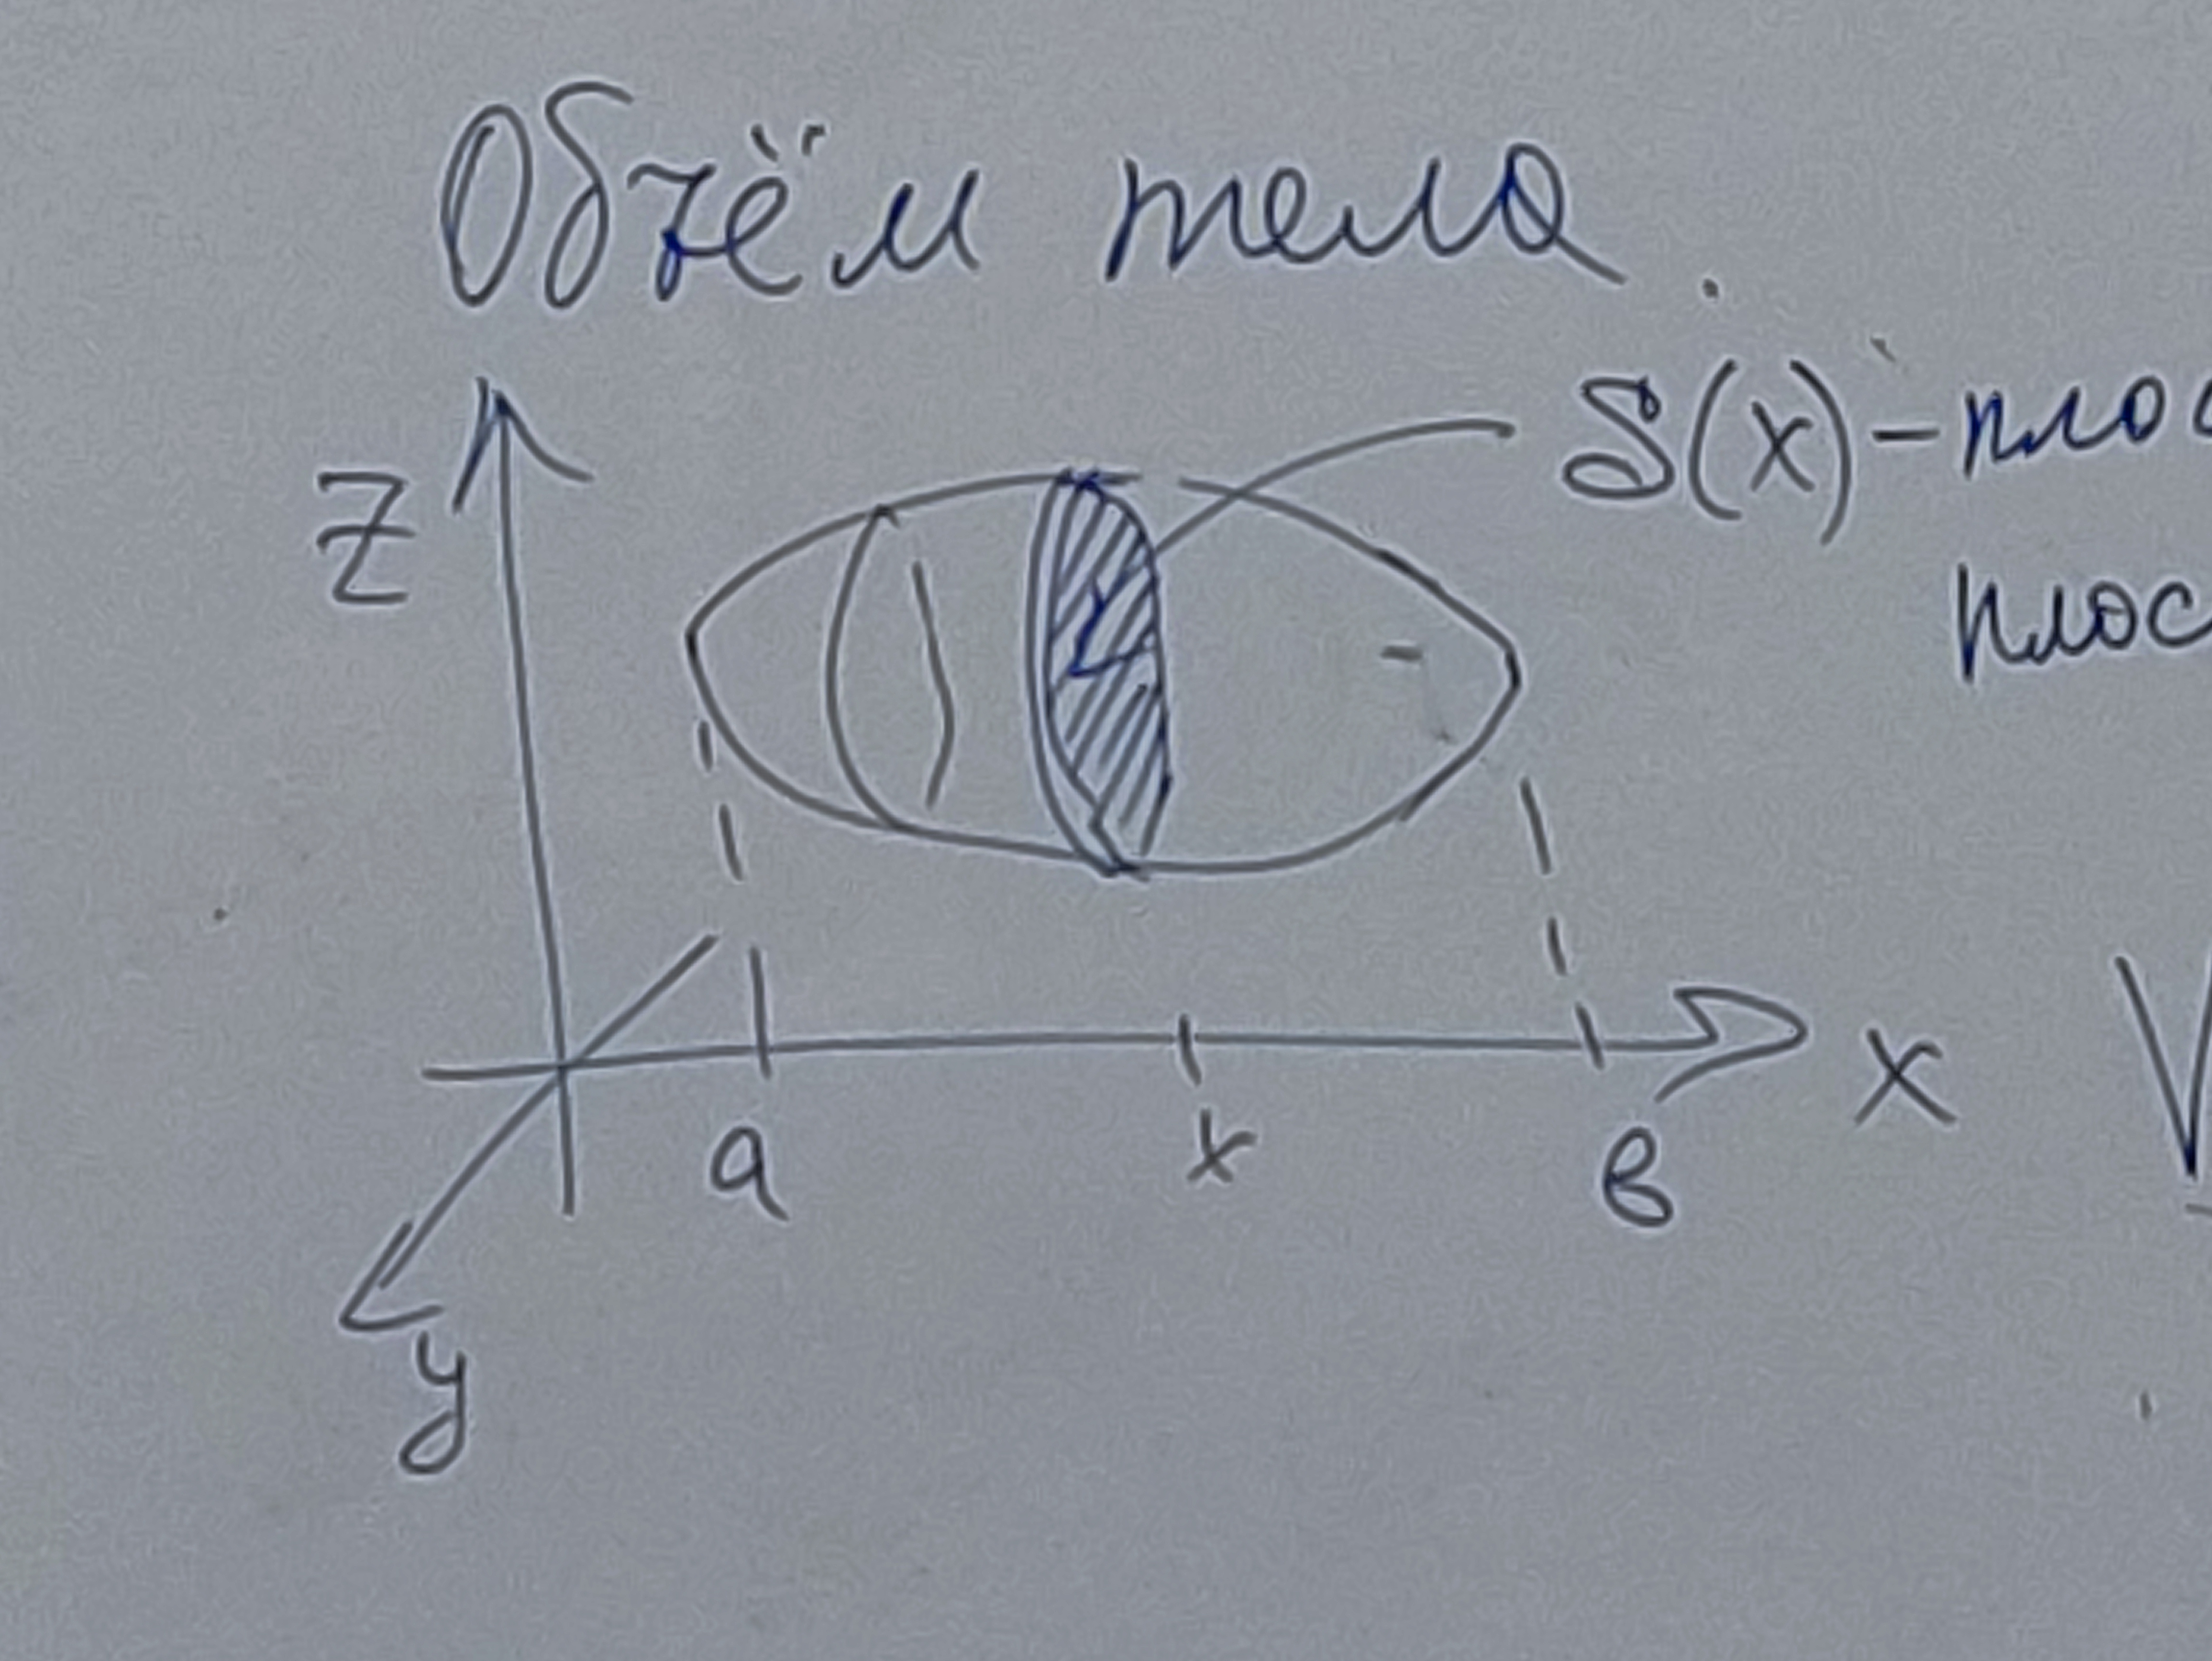 Объём тела.
S(x) - плос
плос
z
V
a x в x
y